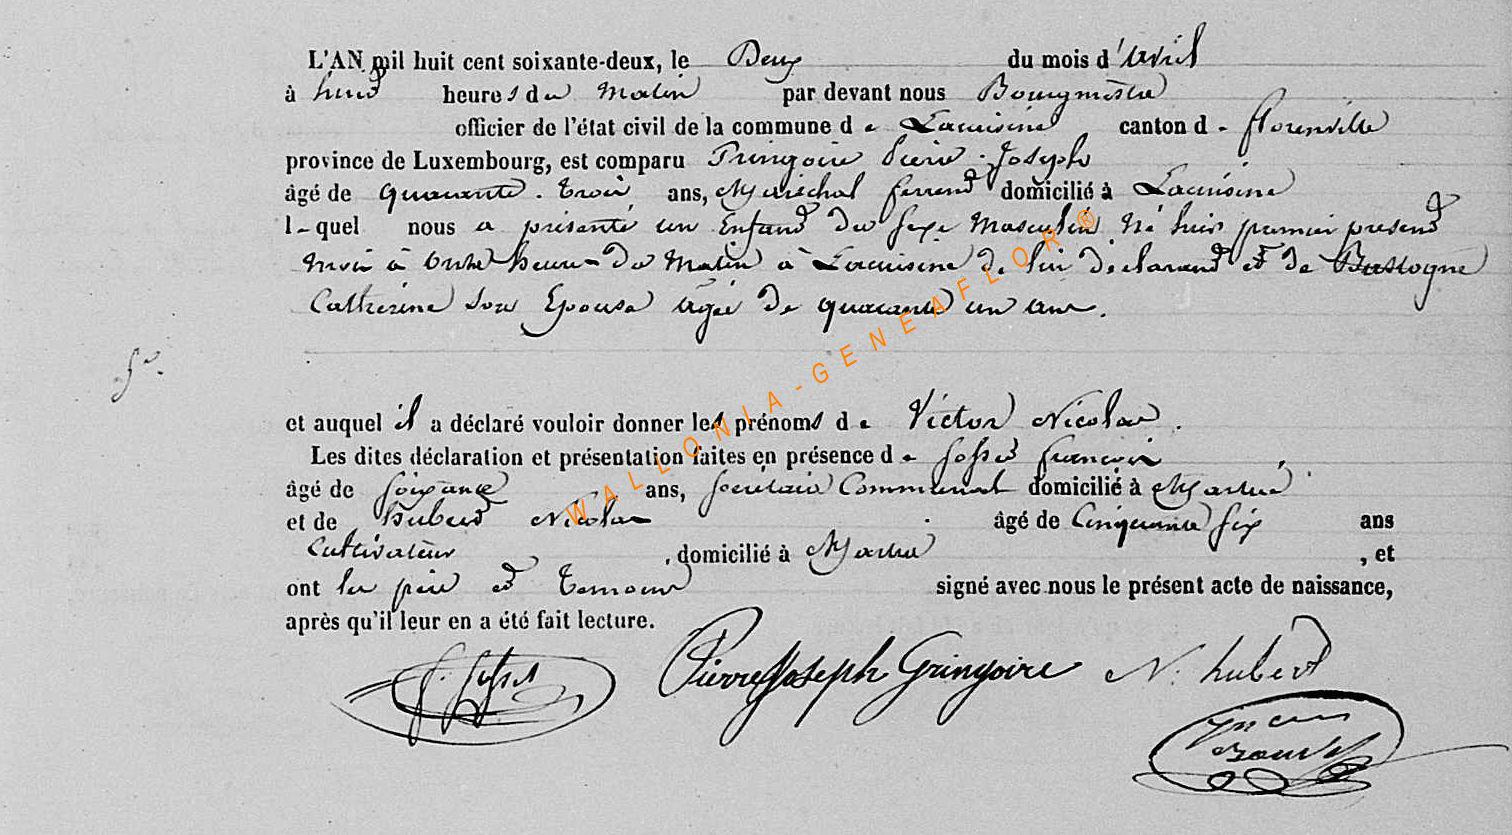 L'AN mil huit cent soixante-deux, le Deux du mois d'avril
à huit heures du Matin par devant nous Bourgmestre
officier de l'état civil de la commune de Lacuisine canton de florenville
province de Luxembourg, est comparu Gringoire Pierre Joseph
âgé de quarante-trois ans, Maréchal ferrent domicilié à Lacuisine
lequel nous a présenté un Enfant du sexe Masculin Né hier premier present
mois à onze heures du Matin à Lacuisine de lui déclarant et de Bastogne
Catherine son Epouse âgée de quarante un ans.
et auquel il a déclaré vouloir donner les prénoms de Victor Nicolas.
Les dites déclaration et présentation faites en présence de françois
âgé de soixante ans, secrétaire Communal domicilié à Martué
et de hubert Nicolas âgé de Cinquante six ans
Cultivateur, domicilié à Martué, et
ont les père et Temoins signé avec nous le présent acte de naissance,
après qu'il leur en a été fait lecture.
Pierre Joseph Gringoire N. hubert
WALLONIA-GENEAFLOR®